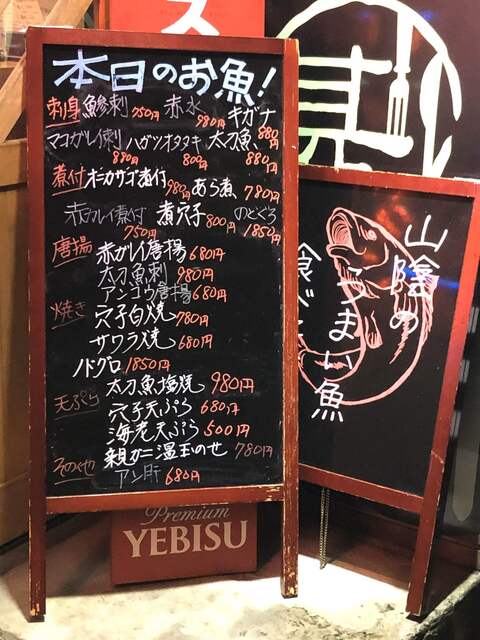 本日のお魚!
刺身 鯵刺 750円 赤水 980円 キガナ 880円
マコガレイ刺 880円 ハガツオタタキ 800円 太刀魚 880円
煮付 オニカサゴ煮付 980円 あら煮 780円
赤ガレイ煮付 750円 煮穴子 800円 のどぐろ 1850円
唐揚 赤ガレイ唐揚 680円
太刀魚刺 980円
アンコウ唐揚 680円
焼き 穴子白焼 780円
サワラ焼 680円
ノドグロ 1850円
太刀魚塩焼 980円
天ぷら 穴子天ぷら 680円
海老天ぷら 500円
親ガニ温玉のせ 780円
アン肝 680円
山陰の
うまい魚
Premium
YEBISU